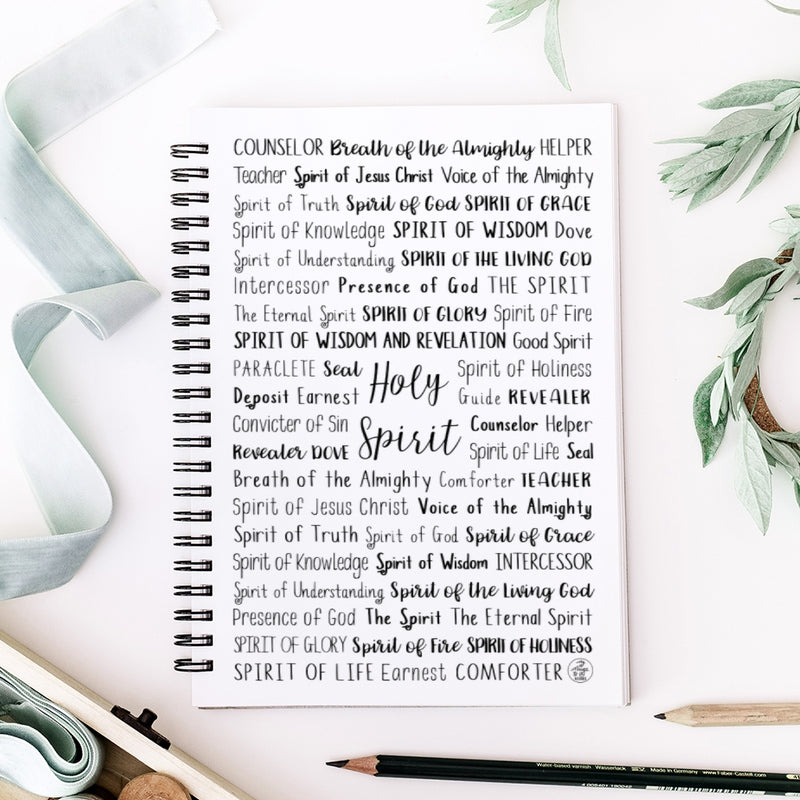 COUNSELOR Breath of the Almighty HELPER
Teacher Spirit of Jesus Christ Voice of the Almighty
Spirit of Truth Spirit of God SPIRIT OF GRACE
Spirit of Knowledge SPIRIT OF WISDOM Dove
Spirit of Understanding SPIRIT OF THE LIVING GOD
Intercessor Presence of God THE SPIRIT
The Eternal Spirit SPIRIT OF GLORY Spirit of Fire
SPIRIT OF WISDOM AND REVELATION Good Spirit
PARACLETE Seal Holy Spirit of Holiness
Deposit Earnest Guide REVEALER
Convicter of Sin Spirit Counselor Helper
Revealer DOVE Spirit of Life Seal
Breath of the Almighty Comforter TEACHER
Spirit of Jesus Christ Voice of the Almighty
Spirit of Truth Spirit of God Spirit of Grace
Spirit of Knowledge Spirit of Wisdom INTERCESSOR
Spirit of Understanding Spirit of the Living God
Presence of God The Spirit The Eternal Spirit
SPIRIT OF GLORY Spirit of Fire SPIRIT OF HOLINESS
SPIRIT OF LIFE Earnest COMFORTER
Water-based varnish Wasserlack Made in Germany www.Faber-Castell.com